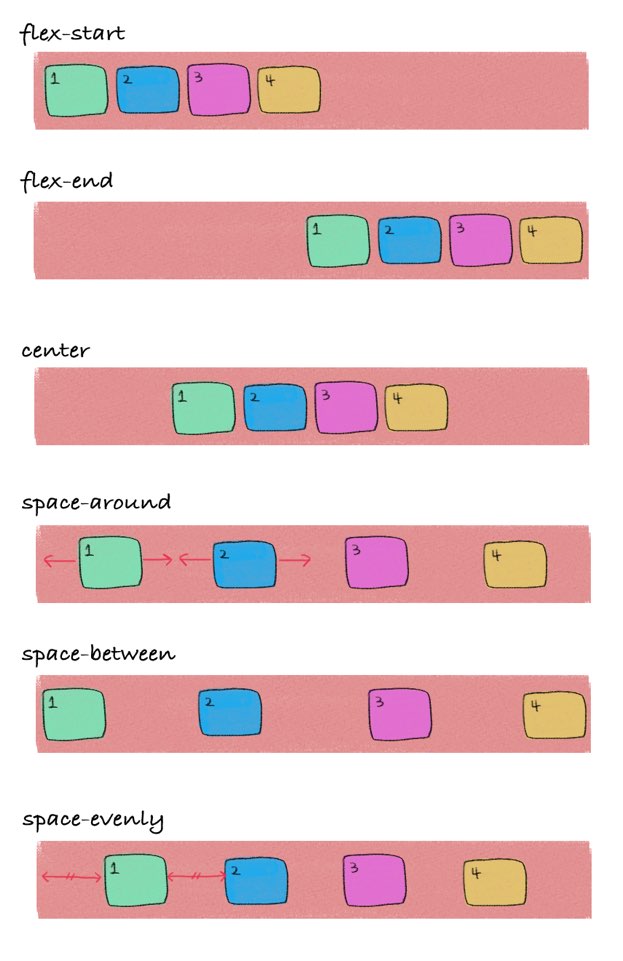 flex-start
1 2 3 4
flex-end
1 2 3 4
center
1 2 3 4
space-around
1 2 3 4
space-between
1 2 3 4
space-evenly
1 2 3 4